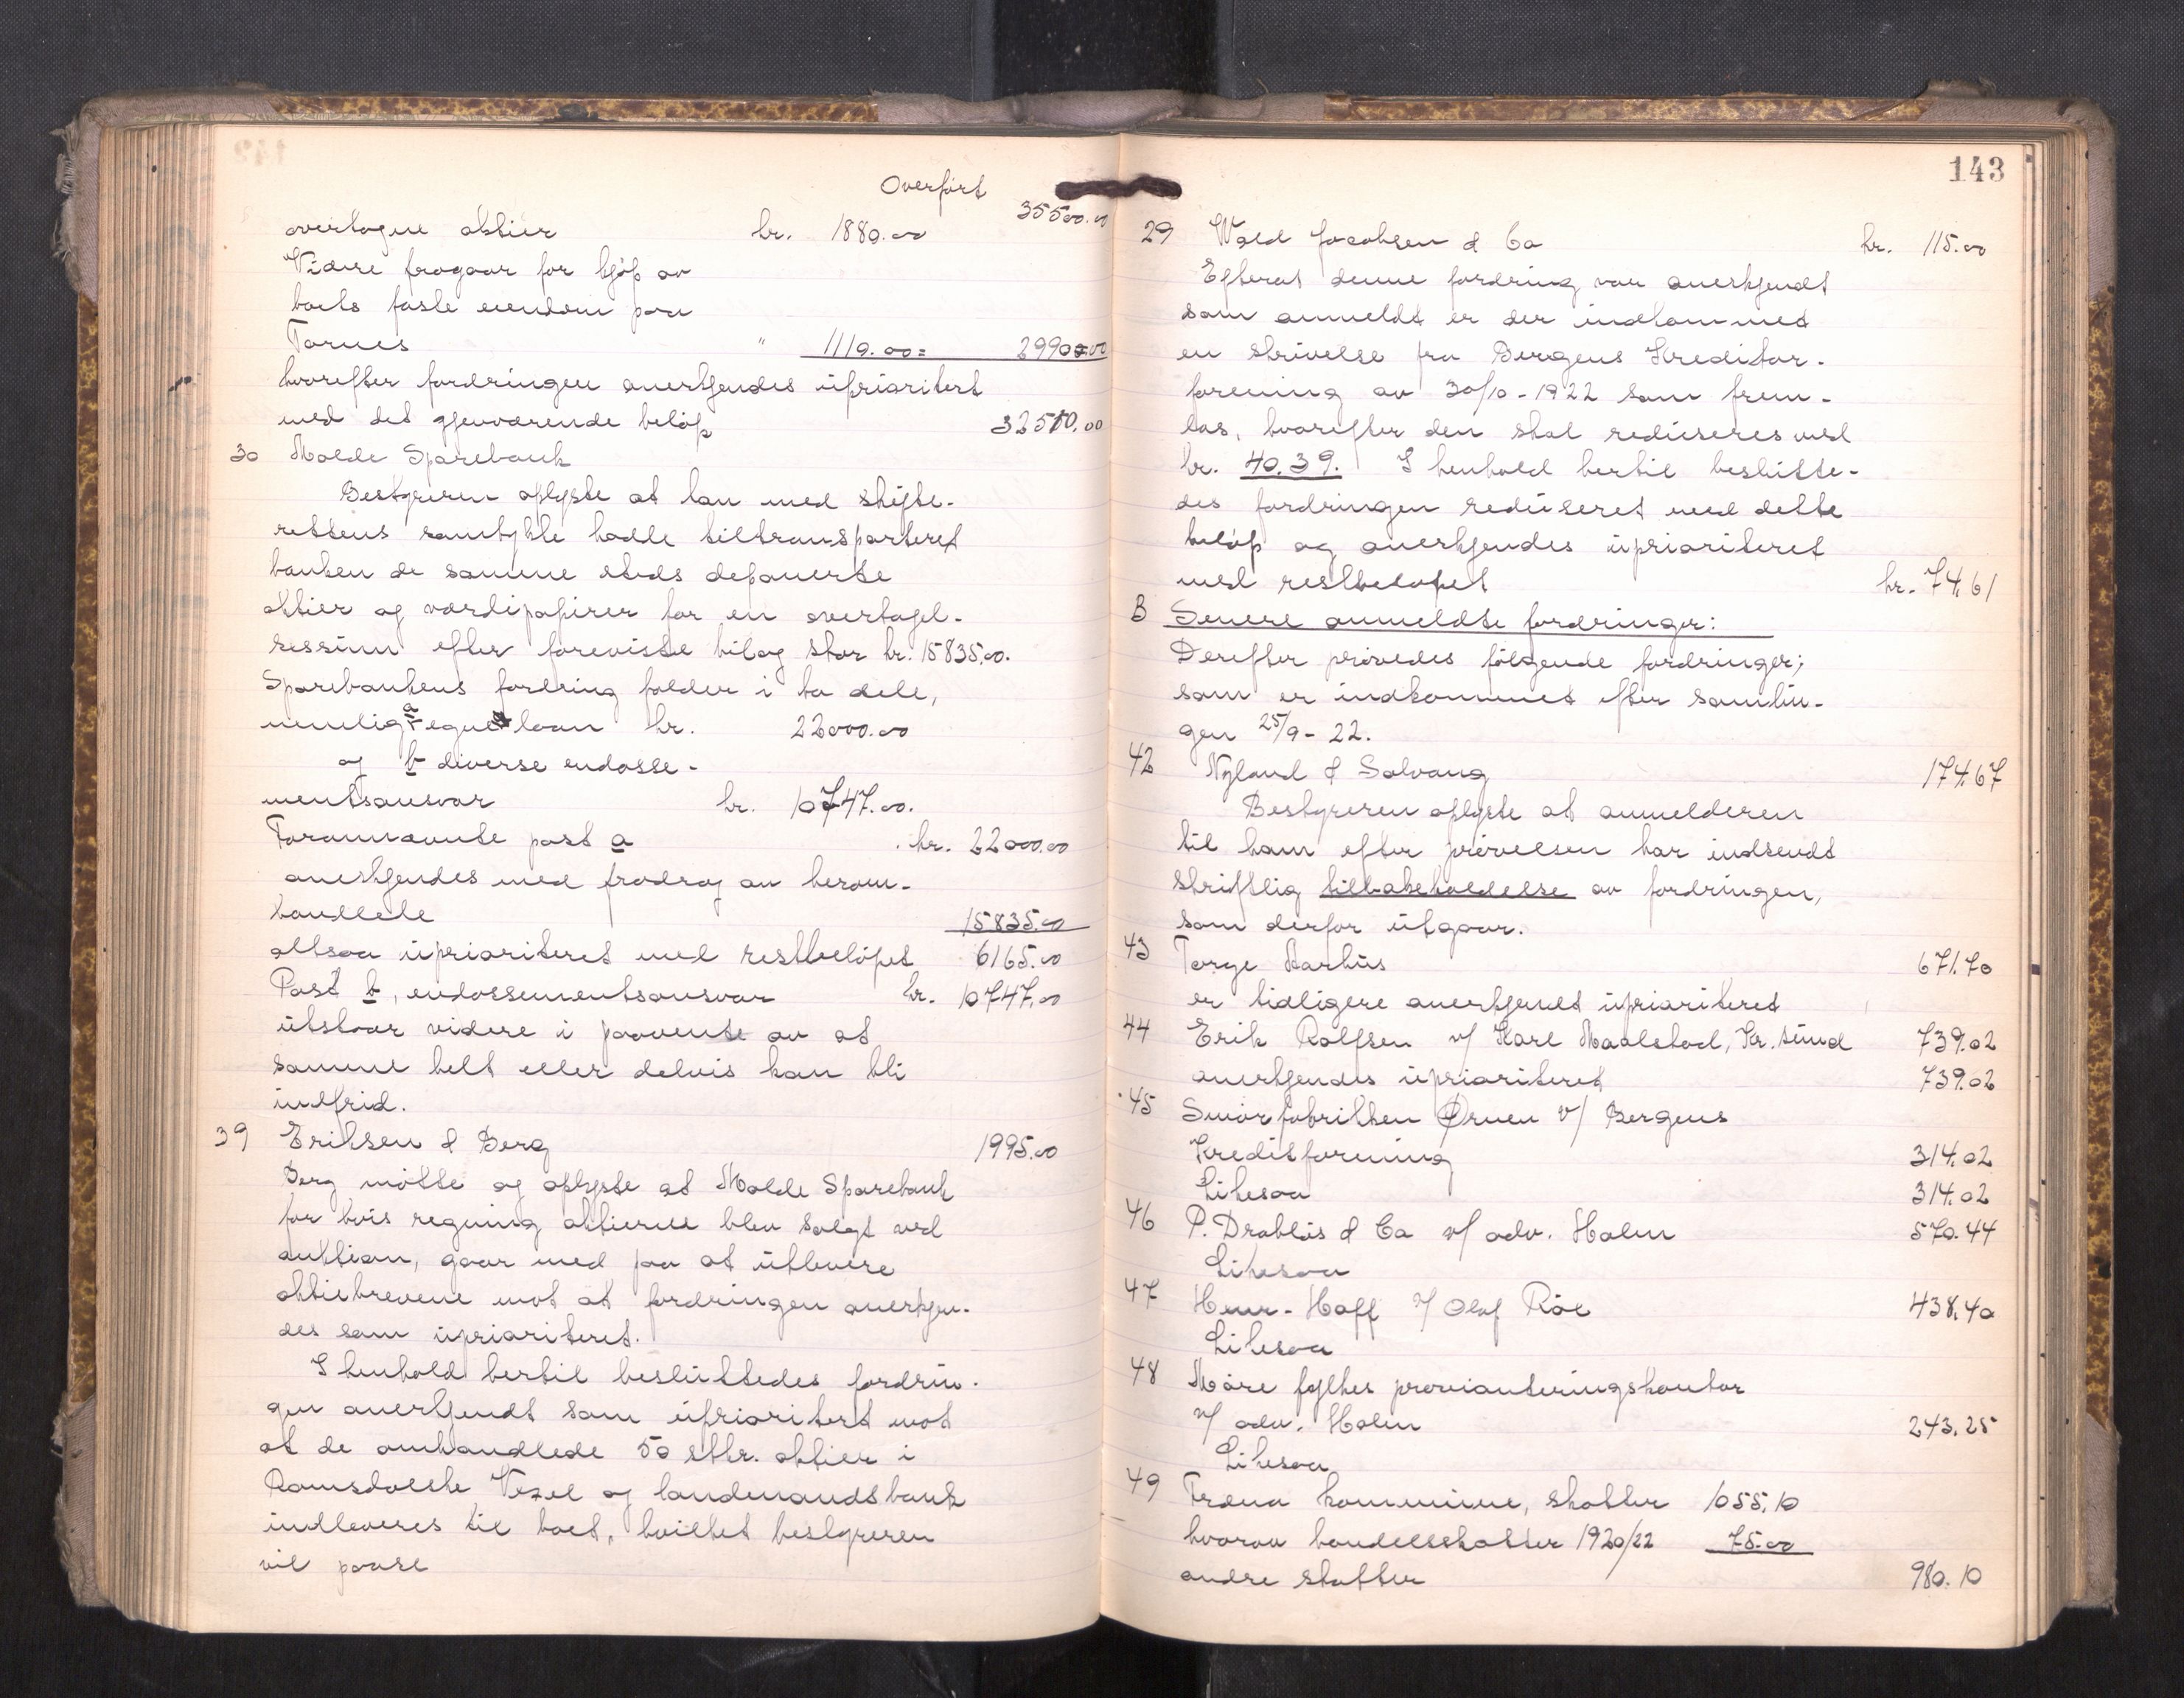 Overført 35500.00
overtagne aktier kr. 1880.00
Videre fragaar for kjøp av
boets faste eiendom paa
Tornes " 1110.00 = 2990.00
hvorefter fordringen anerkjendes uprioritert
med det gjenværende beløp 32510.00
30 Molde Sparebank
Bestyreren oplyste at han med skifte-
rettens samtykke hadde tiltransporteret
banken de samme steds deponerte
aktier og værdipapirer for en overtagel-
sessum efter foreviste bilag stor kr. 15835.00.
Sparebankens fordring falder i to dele,
nemlig a egne laan kr. 22000.00
og b diverse endosse-
mentsansvar kr. 10747.00.
Forannævnte post a kr. 22000.00
anerkjendes med fradrag av herom-
handlede 15835.00
altsaa uprioriteret med restbeløpet 6165.00
Post b, endossementsansvar kr. 10747.00
utstaar videre i paavente av at
samme helt eller delvis kan bli
indfrid.
39 Eriksen & Berg 1995.00
Berg møtte og oplyste at Molde Sparebank
for hvis regning aktierne blev solgt ved
auktion, gaar med paa at utlevere
aktiebrevene mot at fordringen anerkjen-
des som uprioriteret.
I henhold hertil besluttedes fordrin-
gen anerkjendt som uprioritert mot
at de omhandlede 50 stkr. aktier i
Romsdalske Vexel og landmandsbank
indleveres til boet, hvilket bestyreren
vil paase
143
29 Wold Jacobsen & Co kr. 115.00
Efterat denne fordring var anerkjendt
som anmeldt er der indkommet
en skrivelse fra Bergens Kreditor-
forening av 30/10 - 1922 som frem-
las, hvorefter den skal reduseres med
kr. 40.39. I henhold hertil beslutte-
des fordringen reduseret med dette
beløp og anerkjendes uprioriteret
med restbeløpet kr. 74.61
B Senere anmeldte fordringer:
Derefter prøvedes følgende fordringer;
som er indkommet efter samlin-
gen 25/9 - 22.
42 Nyland & Solvang 174.67
Bestyreren oplyste at anmelderen
til ham efter prøvelsen har indsendt
skriftlig tilbakeholdelse av fordringen,
som derfor utgaar.
43 Torge Aarhus 671.70
er tidligere anerkjendt uprioriteret
44 Erik Rolfsen v/ Karl Maalstad, Kr.sund 739.02
anerkjendes uprioriteret 739.02
45 Smørfabrikken Ørnen v/ Bergens
Kreditforening 314.02
Likesaa 314.02
46 P. Drabløs & Co v/ adv. Holm 570.44
Likesaa
47 Henr. Hoff v/ Olaf Röe 438.40
Likesaa
48 Møre fylkes provianteringskontor
v/ adv. Holm 243.25
Likesaa
49 Fræna kommune, skatter 1055.10
hvorav handelsskatter 1920/22 75.00
andre skatter 980.10